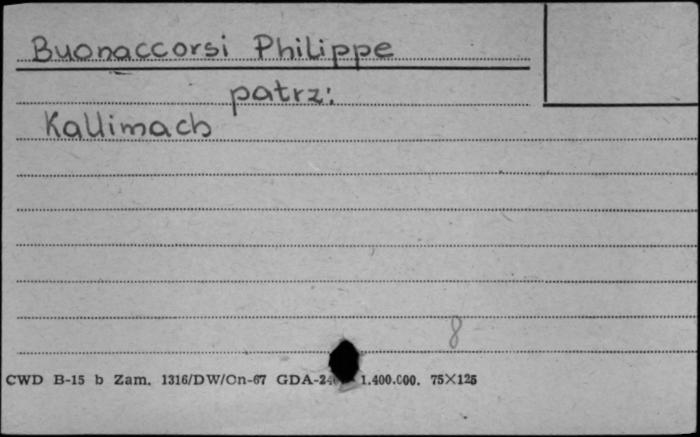 Buonaccorsi Philippe
patrz:
Kallimach
8
CWD B-15 b Zam. 1316/DW/On-67 GDA-24 1.400.000. 75X125